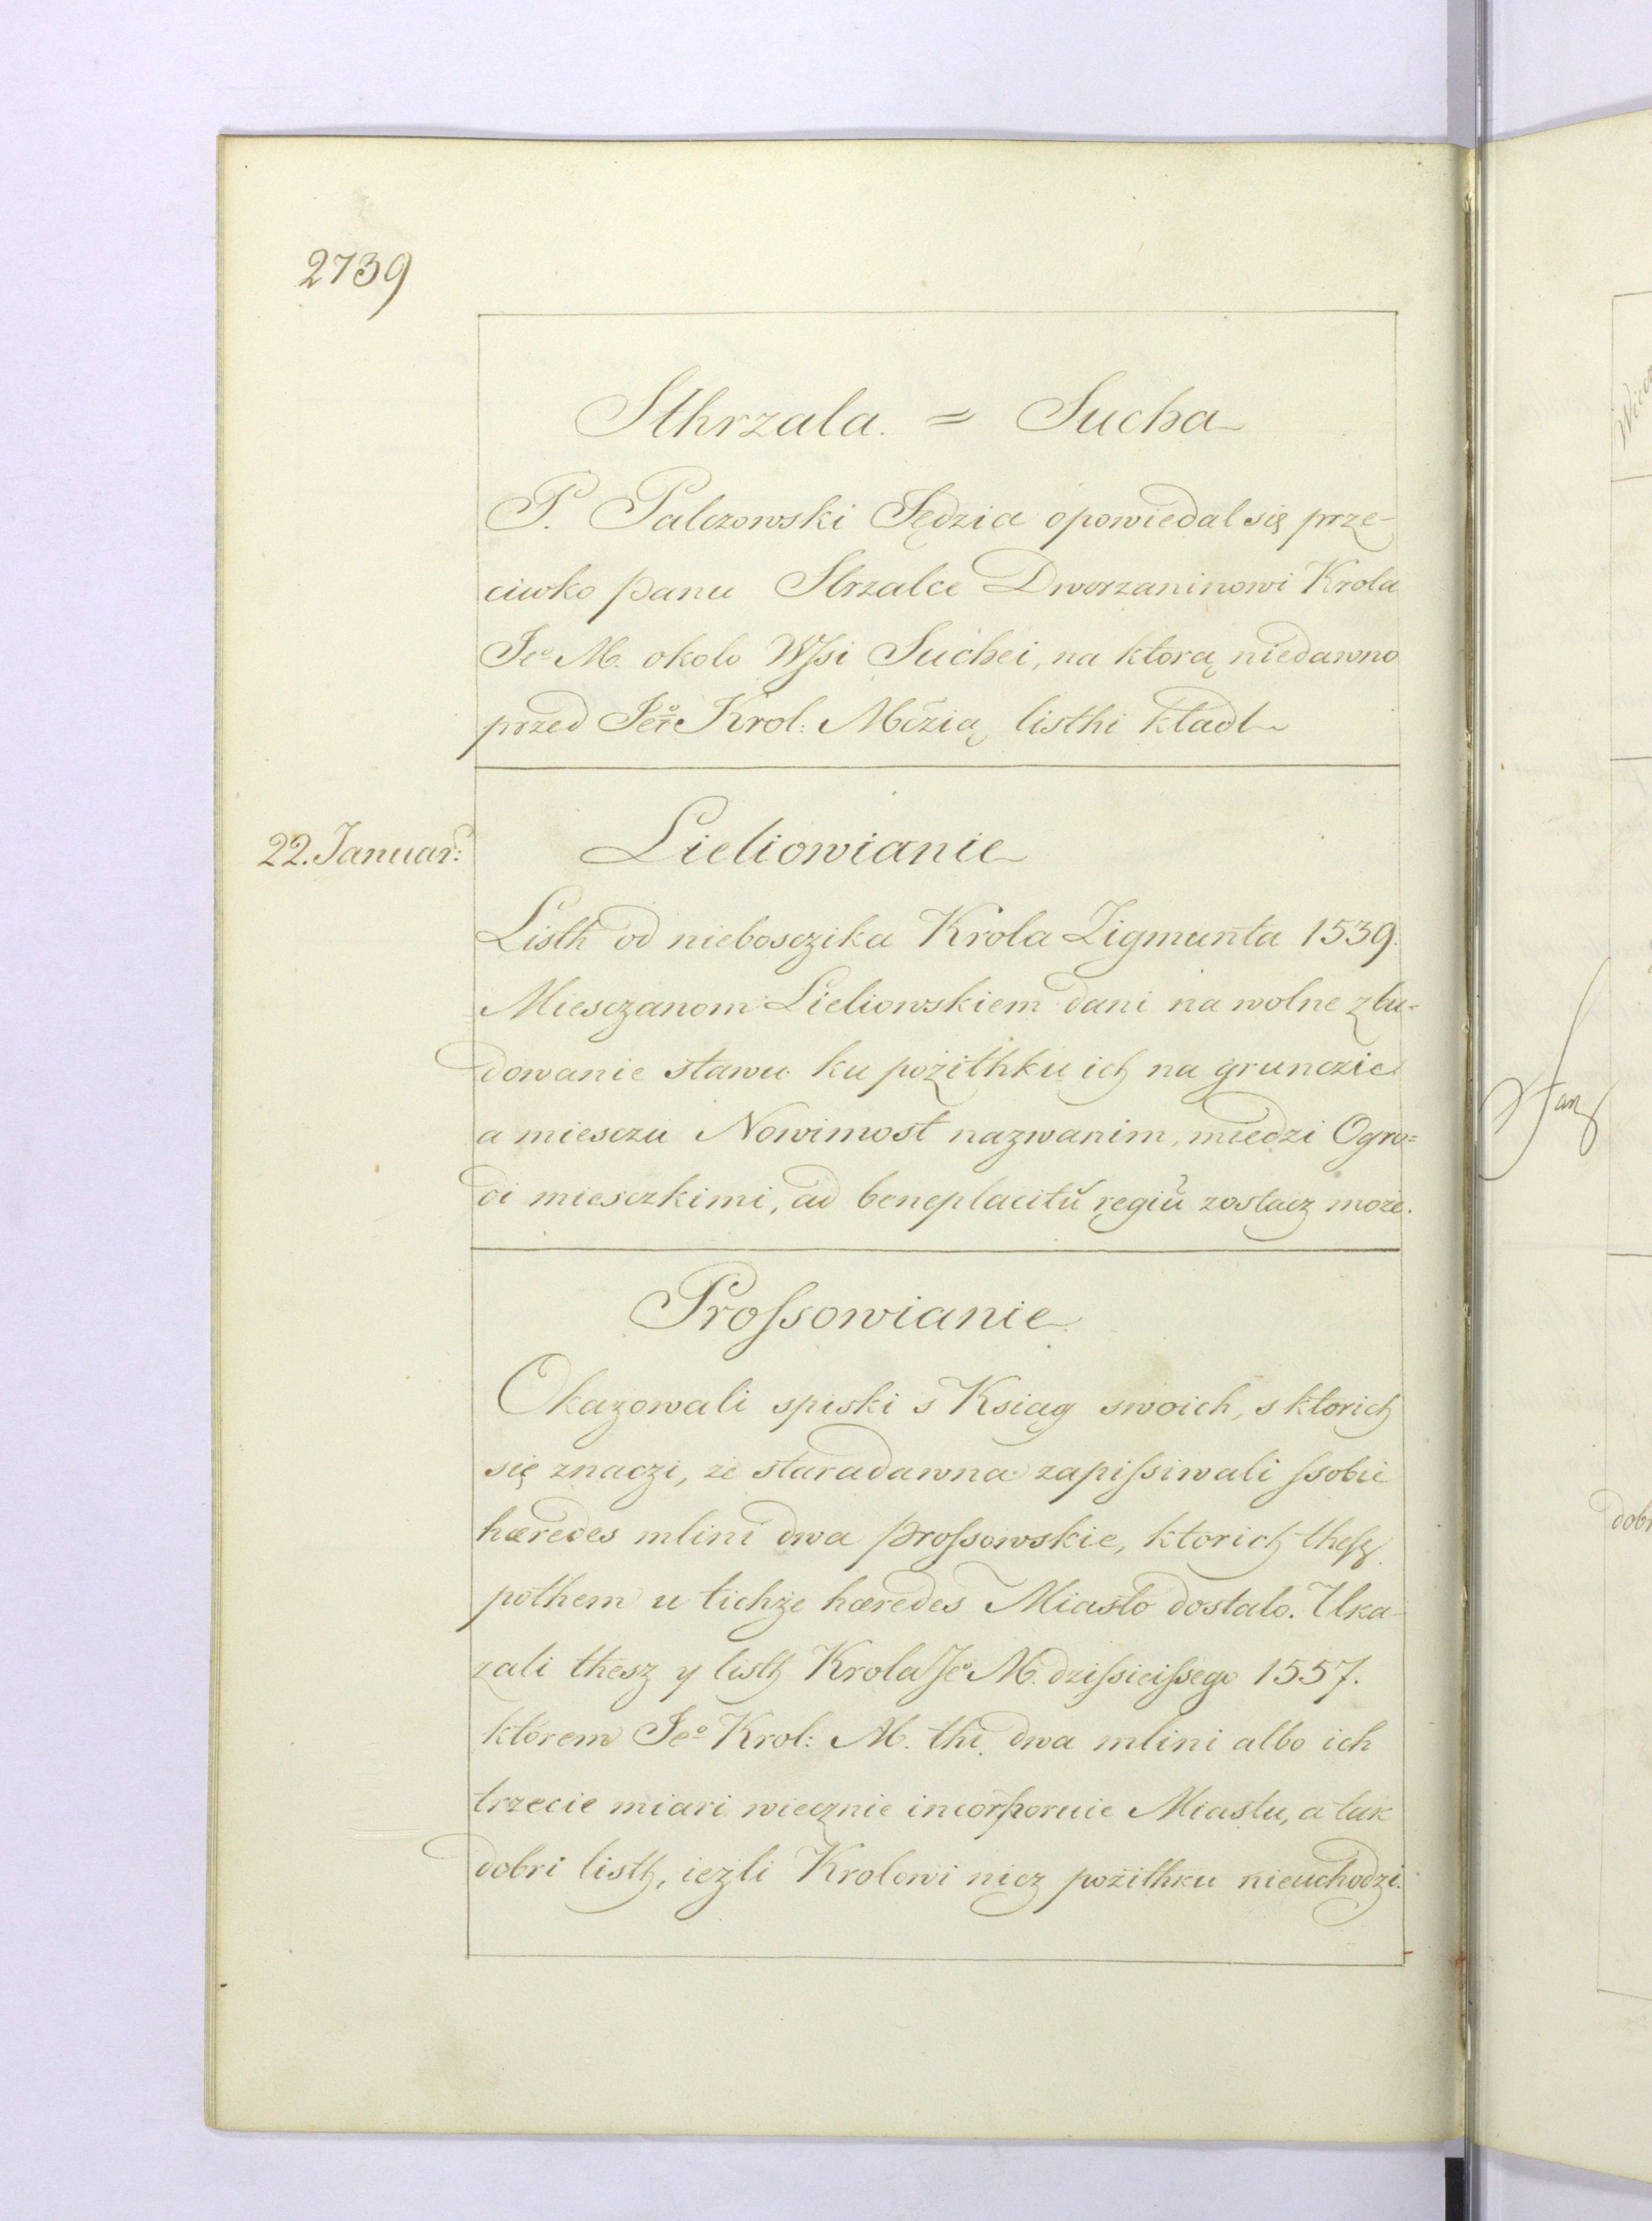 2739
Sthrzala. = Sucha
P. Palczowski Sędzia opowiedal się prze-
ciwko panu Strzalce Dworzaninowi Krola
Jeº M. okolo Wſsi Suchei, na ktorą niedawno
przed Krol: Mczią listhi kładł
22. Januar:
Lieliowianie
Listh od niebosczika Krola Zigmunta 1539.
Miesczanom Lieliowskiem dani na wolne zbu=
dowanie stawu ku pożithku ich na grunczie
a miesczu Nowimost nazwanim, miedzi Ogro=
di miesczkimi, ad beneplacitū regiū zostacz może.
Proſsowianie
Okazowali spiski s Ksiag swoich, s ktorich
się znaczi, że staradawna zapiſsiwali ſsobie
hæredes mlini dwa proſsowskie, ktorich theſz
pothem u tichże hæredes Miasto dostalo. Uka-
zali thesz y listh Krola Jeº M. dziſsieiſsego 1557.
ktorem Jeº Krol: M. thi dwa mlini albo ich
trzecie miari wiecznie incorporuie Miastu, a tak
dobri listh, iezli Krolowi nicz pożithku nieuchodzi.
dob